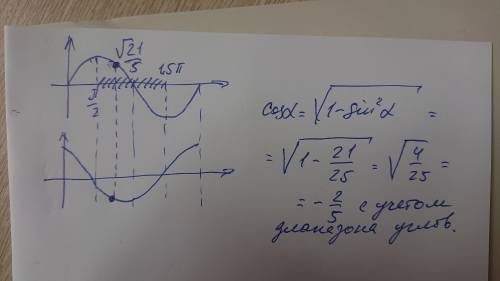 √21/5
1,5π
π/2
cosα = √(1-sin²α) =
= √(1 - 21/25) = √(4/25) =
= - 2/5 с учетом
диапазона углов.